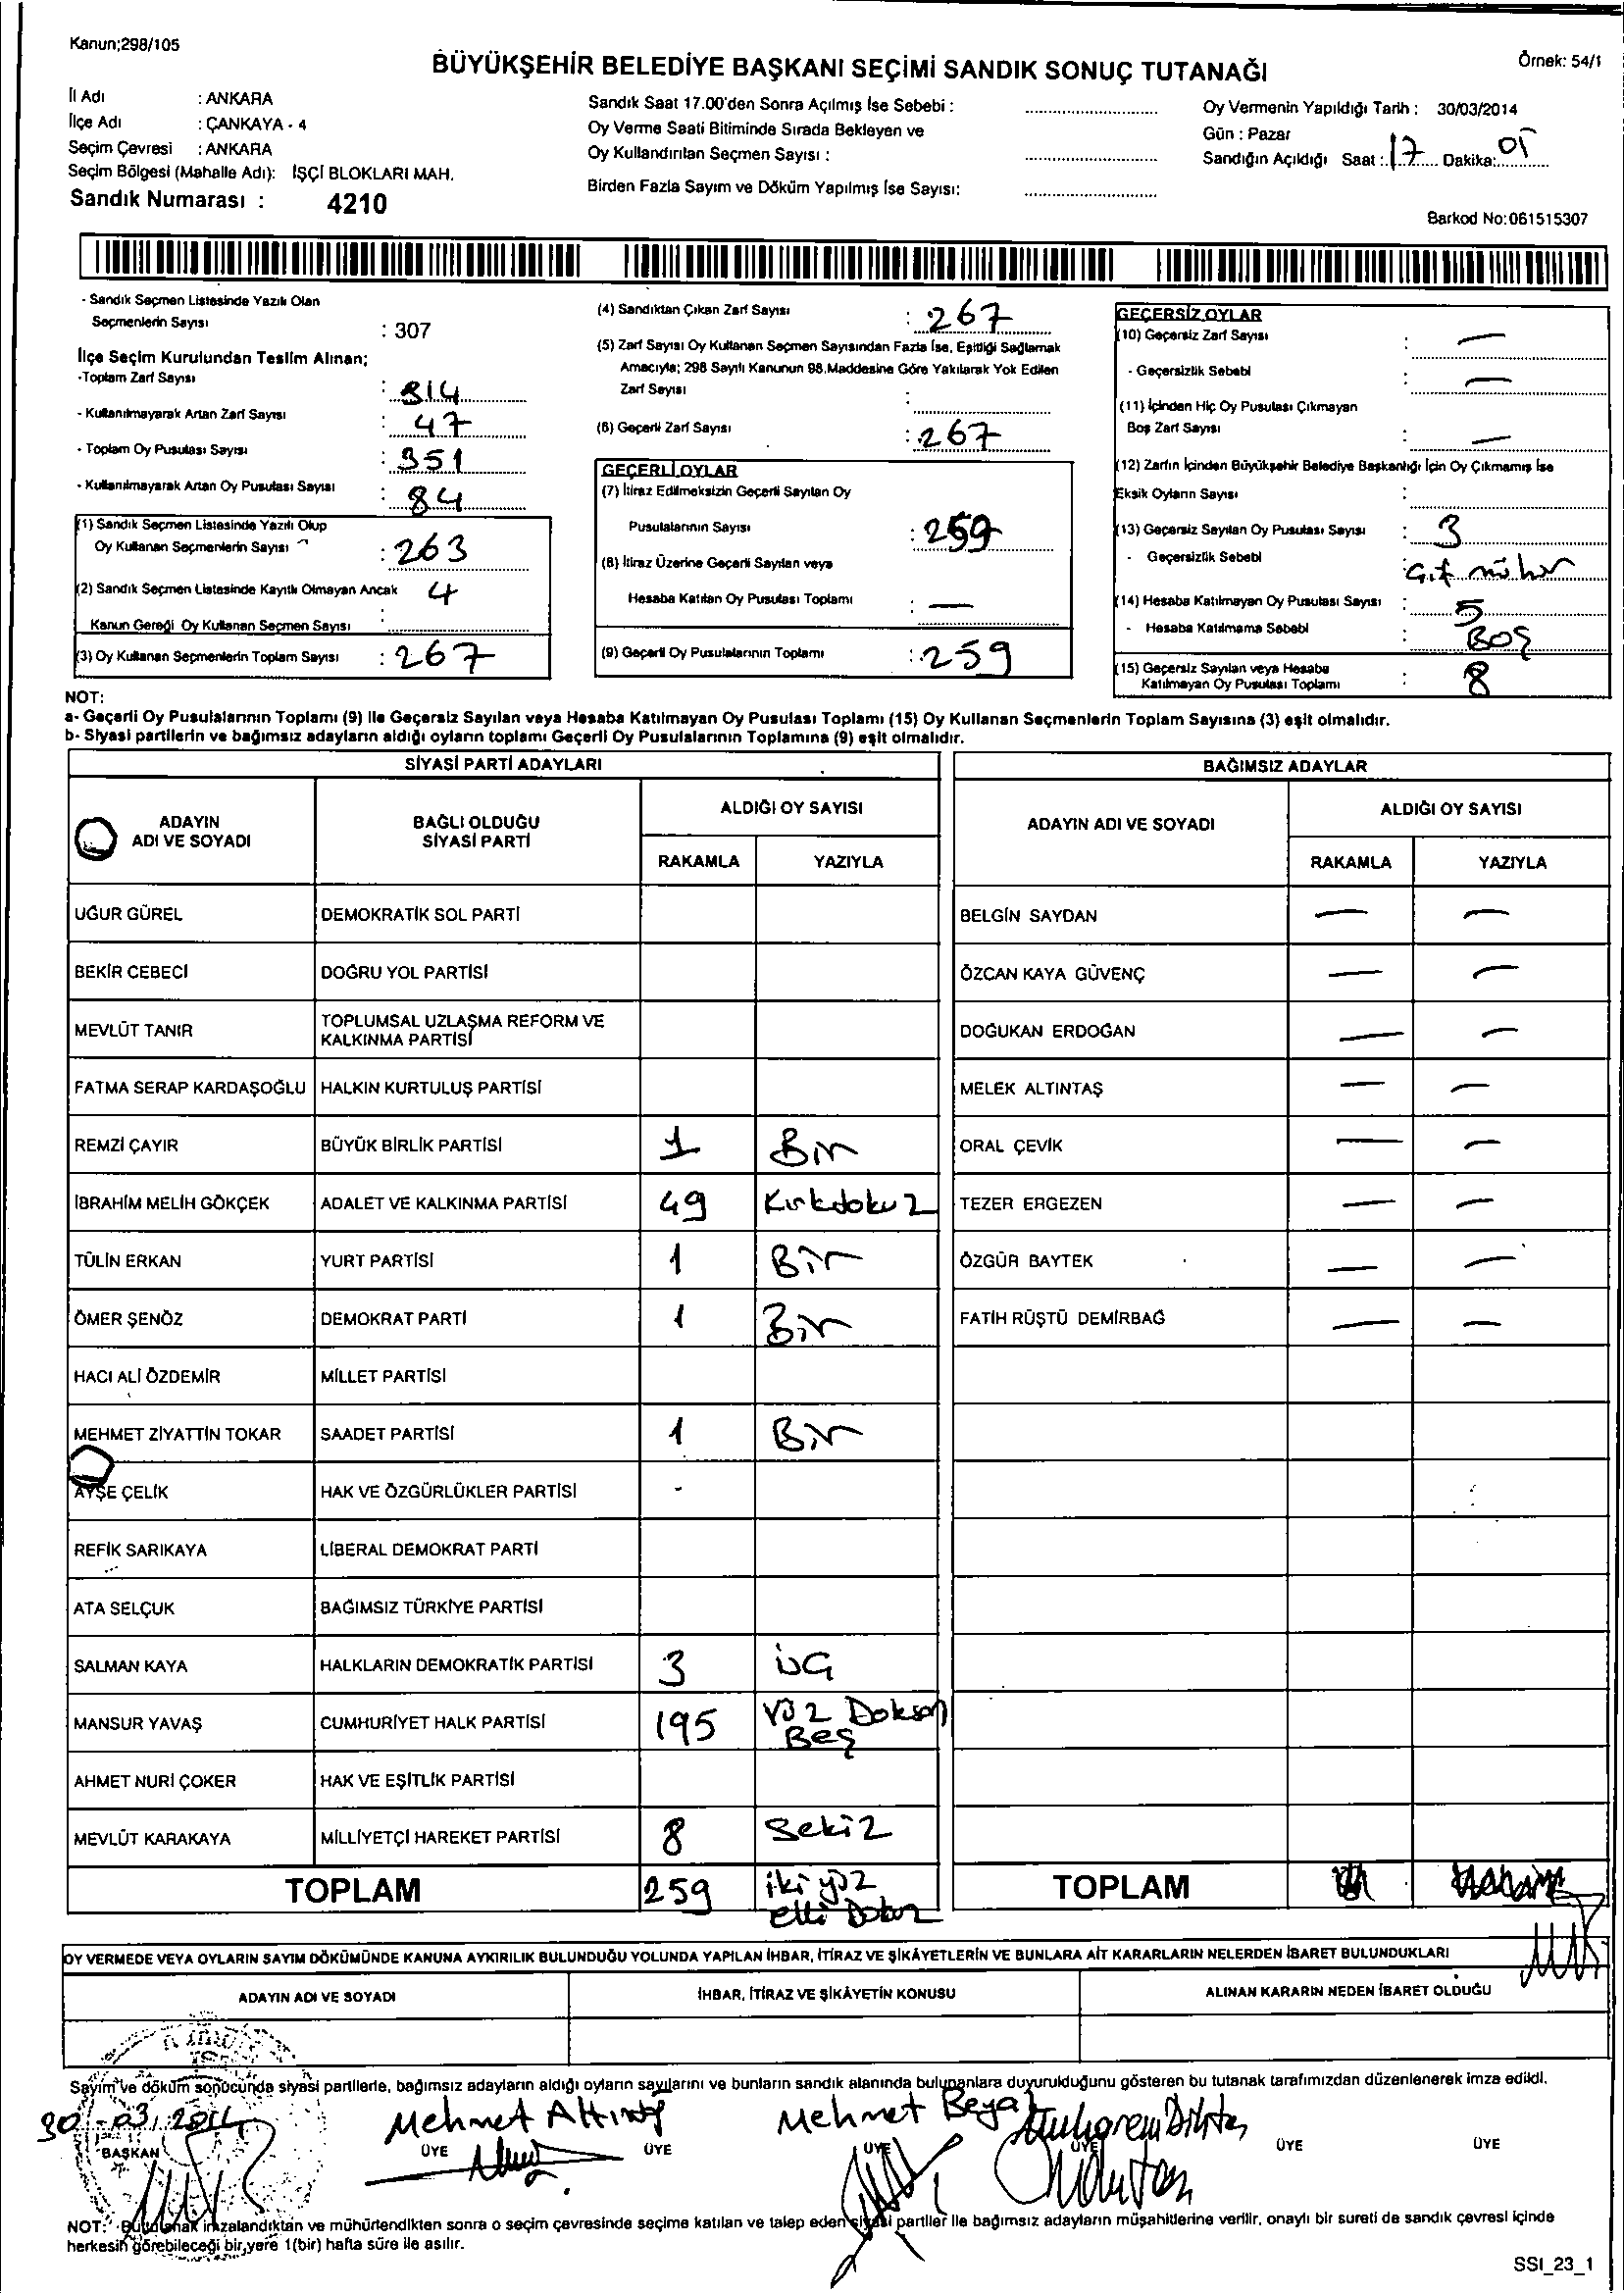 Kanun;298/105
BÜYÜKŞEHİR BELEDİYE BAŞKANI SEÇİMİ SANDIK SONUÇ TUTANAĞI
Örnek: 54/1
İl Adı : ANKARA
İlçe Adı : ÇANKAYA - 4
Seçim Çevresi : ANKARA
Seçim Bölgesi (Mahalle Adı): İŞÇİ BLOKLARI MAH.
Sandık Numarası : 4210
Sandık Saat 17.00'den Sonra Açılmış İse Sebebi :
Oy Verme Saati Bitiminde Sırada Bekleyen ve
Oy Kullandırılan Seçmen Sayısı :
Birden Fazla Sayım ve Döküm Yapılmış İse Sayısı:
Oy Vermenin Yapıldığı Tarih : 30/03/2014
Gün : Pazar
Sandığın Açıldığı Saat : 17 Dakika: 05
Barkod No:061515307
- Sandık Seçmen Listesinde Yazılı Olan
Seçmenlerin Sayısı : 307
İlçe Seçim Kurulundan Teslim Alınan;
-Toplam Zarf Sayısı : 314
- Kullanılmayarak Artan Zarf Sayısı : 47
- Toplam Oy Pusulası Sayısı : 351
- Kullanılmayarak Artan Oy Pusulası Sayısı : 84
(1) Sandık Seçmen Listesinde Yazılı Olup
Oy Kullanan Seçmenlerin Sayısı : 263
(2) Sandık Seçmen Listesinde Kayıtlı Olmayan Ancak 4
Kanun Gereği Oy Kullanan Seçmen Sayısı :
(3) Oy Kullanan Seçmenlerin Toplam Sayısı : 267
(4) Sandıktan Çıkan Zarf Sayısı : 267
(5) Zarf Sayısı Oy Kullanan Seçmen Sayısından Fazla İse, Eşitliği Sağlamak
Amacıyla; 298 Sayılı Kanunun 98.Maddesine Göre Yakılarak Yok Edilen
Zarf Sayısı :
(6) Geçerli Zarf Sayısı : 267
GEÇERLİ OYLAR
(7) İtiraz Edilmeksizin Geçerli Sayılan Oy
Pusulalarının Sayısı : 259
(8) İtiraz Üzerine Geçerli Sayılan veya
Hesaba Katılan Oy Pusulası Toplamı : —
(9) Geçerli Oy Pusulalarının Toplamı : 259
GEÇERSİZ OYLAR
(10) Geçersiz Zarf Sayısı : —
- Geçersizlik Sebebi : —
(11) İçinden Hiç Oy Pusulası Çıkmayan
Boş Zarf Sayısı : —
(12) Zarfın İçinden Büyükşehir Belediye Başkanlığı İçin Oy Çıkmamış İse
Eksik Oyların Sayısı :
(13) Geçersiz Sayılan Oy Pusulası Sayısı : 3
- Geçersizlik Sebebi : Çift mühür
(14) Hesaba Katılmayan Oy Pusulası Sayısı : 5
- Hesaba Katılmama Sebebi : BOŞ
(15) Geçersiz Sayılan veya Hesaba
Katılmayan Oy Pusulası Toplamı : 8
NOT:
a- Geçerli Oy Pusulalarının Toplamı (9) ile Geçersiz Sayılan veya Hesaba Katılmayan Oy Pusulası Toplamı (15) Oy Kullanan Seçmenlerin Toplam Sayısına (3) eşit olmalıdır.
b- Siyasi partilerin ve bağımsız adayların aldığı oyların toplamı Geçerli Oy Pusulalarının Toplamına (9) eşit olmalıdır.
SİYASİ PARTİ ADAYLARI
ADAYIN
ADI VE SOYADI
BAĞLI OLDUĞU
SİYASİ PARTİ
ALDIĞI OY SAYISI
RAKAMLA YAZIYLA
UĞUR GÜREL DEMOKRATİK SOL PARTİ
BEKİR CEBECİ DOĞRU YOL PARTİSİ
MEVLÜT TANIR TOPLUMSAL UZLAŞMA REFORM VE
KALKINMA PARTİSİ
FATMA SERAP KARDAŞOĞLU HALKIN KURTULUŞ PARTİSİ
REMZİ ÇAYIR BÜYÜK BİRLİK PARTİSİ 1 Bir
İBRAHİM MELİH GÖKÇEK ADALET VE KALKINMA PARTİSİ 49 Kırkdokuz
TÜLİN ERKAN YURT PARTİSİ 1 Bir
ÖMER ŞENÖZ DEMOKRAT PARTİ 1 Bir
HACI ALİ ÖZDEMİR MİLLET PARTİSİ
MEHMET ZİYATTİN TOKAR SAADET PARTİSİ 1 Bir
AYŞE ÇELİK HAK VE ÖZGÜRLÜKLER PARTİSİ -
REFİK SARIKAYA LİBERAL DEMOKRAT PARTİ
ATA SELÇUK BAĞIMSIZ TÜRKİYE PARTİSİ
SALMAN KAYA HALKLARIN DEMOKRATİK PARTİSİ 3 üç
MANSUR YAVAŞ CUMHURİYET HALK PARTİSİ 195 Yüz Doksan
Beş
AHMET NURİ ÇOKER HAK VE EŞİTLİK PARTİSİ
MEVLÜT KARAKAYA MİLLİYETÇİ HAREKET PARTİSİ 8 Sekiz
TOPLAM 259 iki yüz
elli Dokuz
BAĞIMSIZ ADAYLAR
ADAYIN ADI VE SOYADI
ALDIĞI OY SAYISI
RAKAMLA YAZIYLA
BELGİN SAYDAN — —
ÖZCAN KAYA GÜVENÇ — —
DOĞUKAN ERDOĞAN — —
MELEK ALTINTAŞ — —
ORAL ÇEVİK — —
TEZER ERGEZEN — —
ÖZGÜR BAYTEK — —
FATİH RÜŞTÜ DEMİRBAĞ — —
TOPLAM
OY VERMEDE VEYA OYLARIN SAYIM DÖKÜMÜNDE KANUNA AYKIRILIK BULUNDUĞU YOLUNDA YAPILAN İHBAR, İTİRAZ VE ŞİKÂYETLERİN VE BUNLARA AİT KARARLARIN NELERDEN İBARET BULUNDUKLARI
ADAYIN ADI VE SOYADI
İHBAR, İTİRAZ VE ŞİKÂYETİN KONUSU
ALINAN KARARIN NEDEN İBARET OLDUĞU
Sayım ve döküm sonucunda siyasi partilerle, bağımsız adayların aldığı oyların sayılarını ve bunların sandık alanında bulunanlara duyurulduğunu gösteren bu tutanak tarafımızdan düzenlenerek imza edildi.
30-03.2014
Mehmet Mehmet
BAŞKAN ÜYE ÜYE ÜYE ÜYE ÜYE ÜYE
NOT: Bu tutanak imzalandıktan ve mühürlendikten sonra o seçim çevresinde seçime katılan ve talep eden siyasi partiler ile bağımsız adayların müşahitlerine verilir, onaylı bir sureti de sandık çevresi içinde
herkesin görebileceği bir yere 1(bir) hafta süre ile asılır.
SSI_23_1